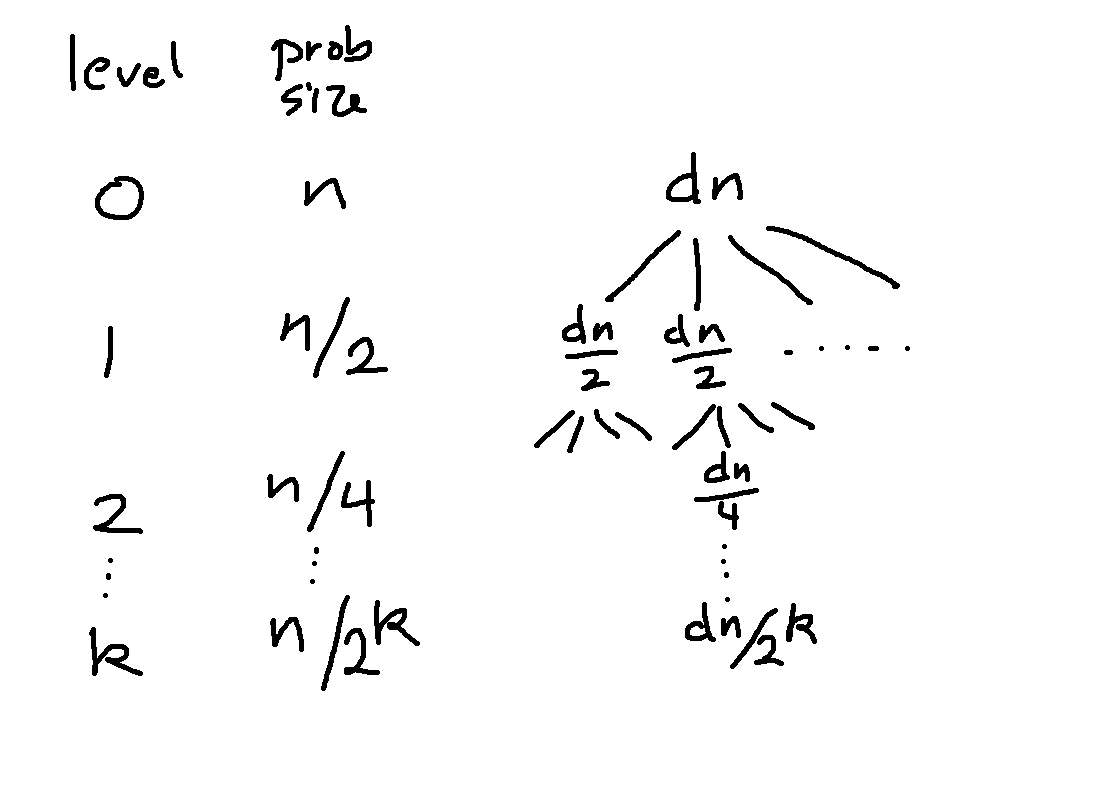 level prob size
0 n dn
1 n/2 dn/2 dn/2 . . . . .
2 n/4 dn/4
⋮ ⋮ ⋮
k n/2^k dn/2^k